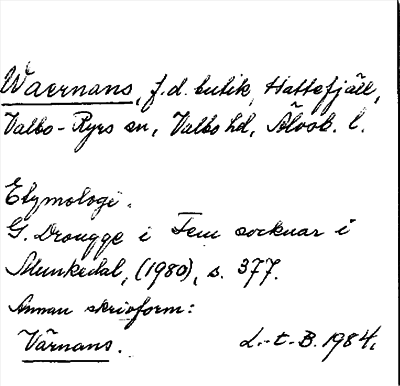 Waernans, f.d. butik, Hattefjäll,
Valbo-Ryrs sn, Valbo hd, Älvsb. l.
Etymologi.
G. Drougge i Fem socknar i
Munkedal, (1980), s. 377.
Annan skrivform:
Värnans.
L.-t.-B. 1984.